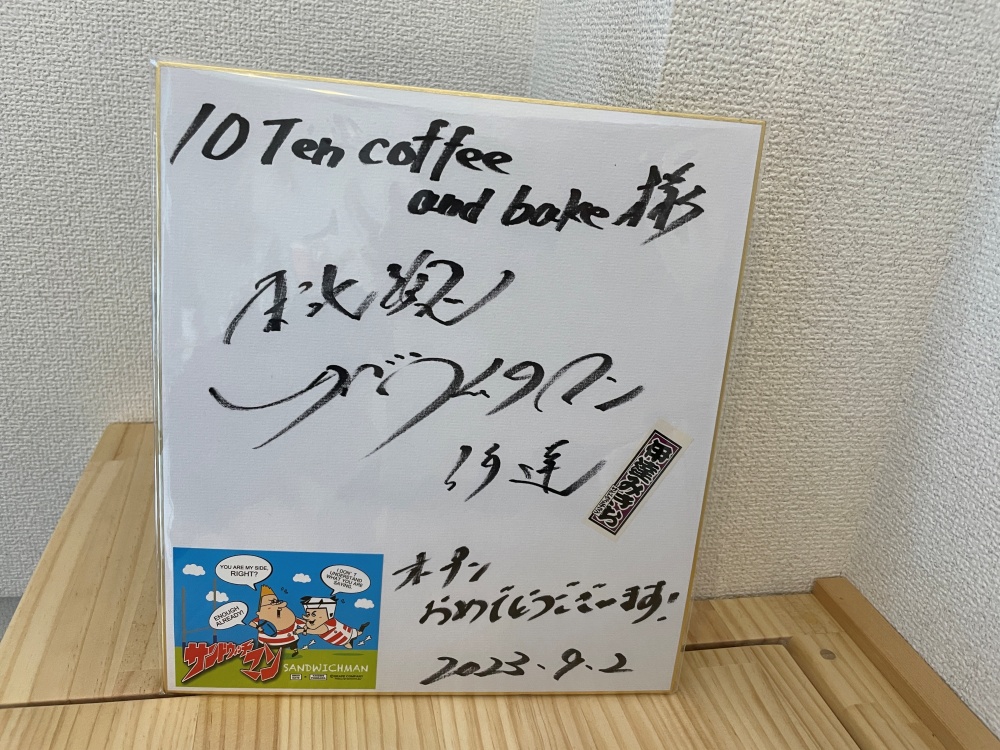 10 Ten coffee
and bake 様
東北魂
サンドウィッチマン
伊達
伊達みきお
オープン
おめでとうございます!
2023.9.2
YOU ARE MY SIDE,
RIGHT?
I DON'T
UNDERSTAND
WHAT YOU ARE
SAYING.
ENOUGH
ALREADY!
サンドウィッチマン
SANDWICHMAN